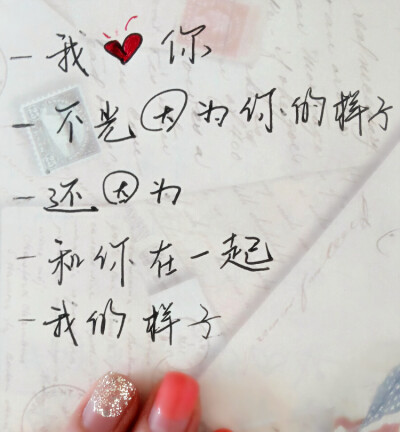 - 我❤你
- 不光因为你的样子
- 还因为
- 和你在一起
- 我的样子